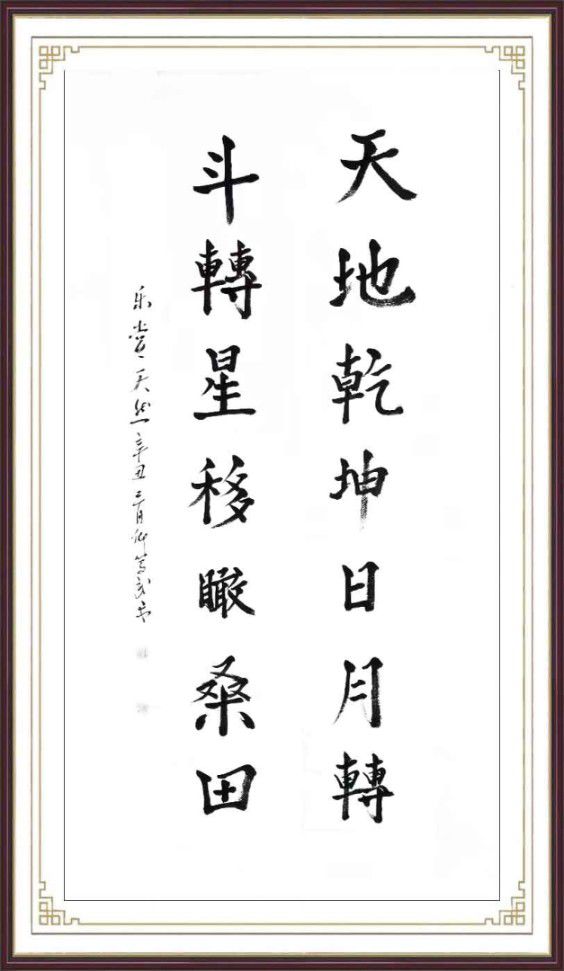 天地乾坤日月轉
斗轉星移瞰桑田
乐 天 辛丑 三月